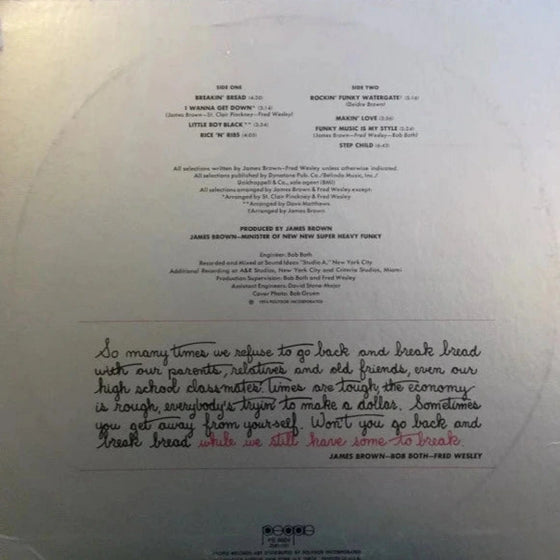 SIDE ONE
BREAKIN' BREAD
I WANNA GET DOWN* (3:14)
(James Brown—St. Clair Pinckney—Fred Wesley)
LITTLE BOY BLACK** (3:34)
RICE 'N' RIBS (4:05)
SIDE TWO
ROCKIN' FUNKY WATERGATE†
(Deidre Brown)
MAKIN' LOVE
FUNKY MUSIC IS MY STYLE
(James Brown—Fred Wesley—Bob Both)
STEP CHILD
All selections written by James Brown—Fred Wesley unless otherwise indicated.
All selections published by Dynatone Pub. Co./Belinda Music, Inc./
Unichappell & Co., sole agent (BMI)
All selections arranged by James Brown & Fred Wesley except:
*Arranged by St. Clair Pinckney & Fred Wesley
**Arranged by Dave Matthews
†Arranged by James Brown
PRODUCED BY JAMES BROWN
JAMES BROWN—MINISTER OF NEW NEW SUPER HEAVY FUNK
Engineer: Bob Both
Recorded and Mixed at Sound Ideas "Studio A," New York City
Additional Recording at A&R Studios, New York City and Criteria Studios, Miami
Production Supervision: Bob Both and Fred Wesley
Assistant Engineers: David Stone-Major
Cover Photo: Bob Gruen
1974 POLYDOR INCORPORATED
So many times we refuse to go back and break bread
with our parents, relatives and old friends, even our
high school classmates. Times are tough, the economy
is rough, everybody's tryin' to make a dollar. Sometimes
you get away from yourself. Won't you go back and
break bread while we still have some to break.
JAMES BROWN—BOB BOTH—FRED WESLEY
people
PEOPLE RECORDS ARE DISTRIBUTED BY POLYDOR INCORPORATED